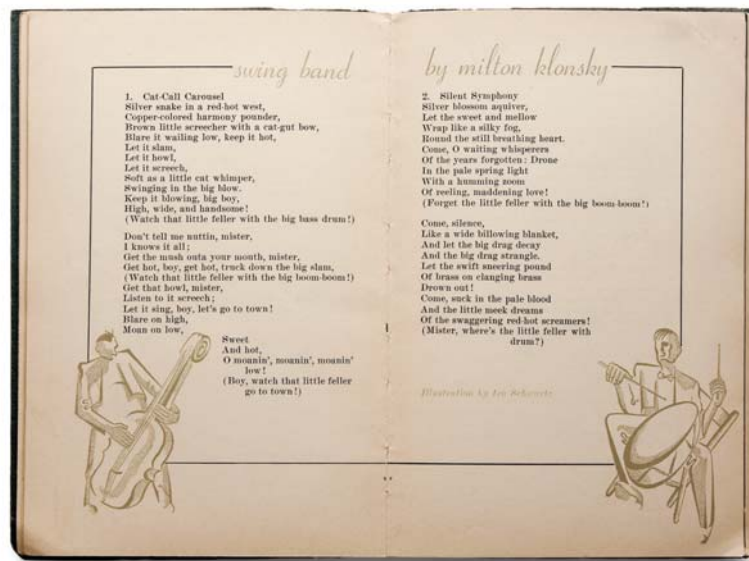 swing band
1. Cat-Call Carousel
Silver snake in a red-hot west,
Copper-colored harmony pounder,
Brown little screecher with a cat-gut bow,
Blare it wailing low, keep it hot,
Let it slam,
Let it howl,
Let it screech,
Soft as a little cat whimper,
Swinging in the big blow.
Keep it blowing, big boy,
High, wide, and handsome!
(Watch that little feller with the big bass drum!)
Don't tell me nuttin, mister,
I knows it all;
Get the mush outa your mouth, mister,
Get hot, boy, get hot, truck down the big slam,
(Watch that little feller with the big boom-boom!)
Get that howl, mister,
Listen to it screech;
Let it sing, boy, let's go to town!
Blare on high,
Moan on low,
Sweet
And hot,
O moanin', moanin', moanin'
low!
(Boy, watch that little feller
go to town!)
by milton klonsky
2. Silent Symphony
Silver blossom aquiver,
Let the sweet and mellow
Wrap like a silky fog,
Round the still breathing heart.
Come, O waiting whisperers
Of the years forgotten: Drone
In the pale spring light
With a humming zoom
Of reeling, maddening love!
(Forget the little feller with the big boom-boom!)
Come, silence,
Like a wide billowing blanket,
And let the big drag decay
And the big drag strangle.
Let the swift sneering pound
Of brass on clanging brass
Drown out!
Come, suck in the pale blood
And the little meek dreams
Of the swaggering red-hot screamers!
(Mister, where's the little feller with
drum?)
Illustration by